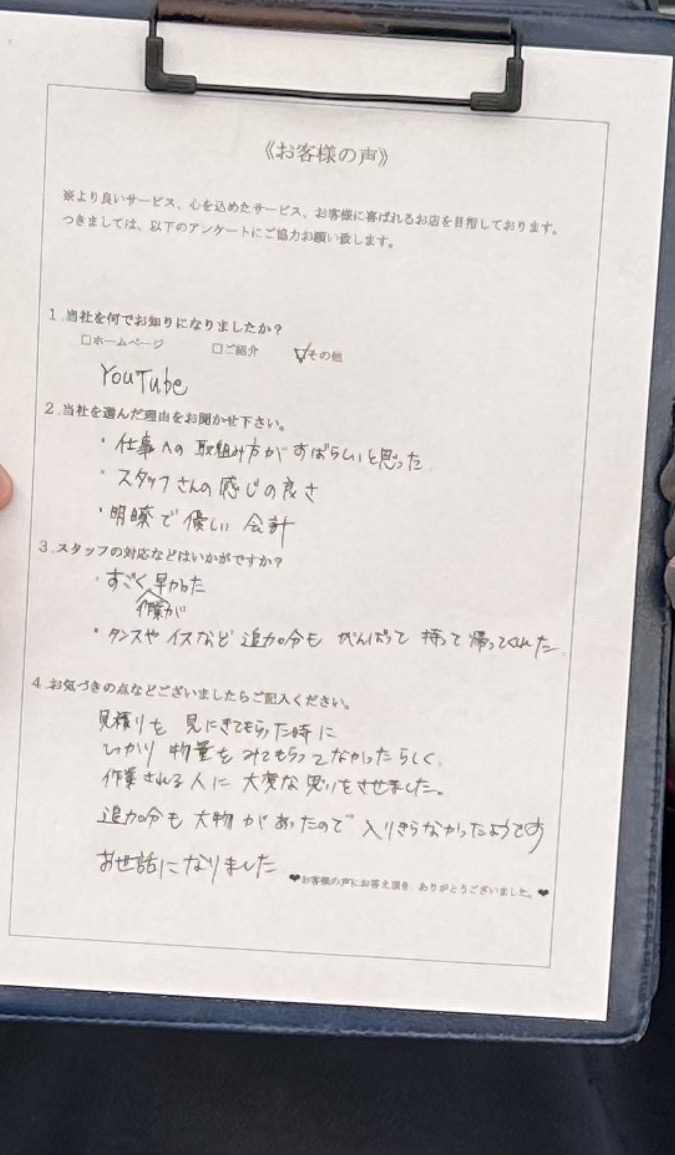 《お客様の声》
※より良いサービス、心を込めたサービス、お客様に喜ばれるお店を目指しております。
つきましては、以下のアンケートにご協力お願い致します。
1.当社を何でお知りになりましたか？
□ホームページ □ご紹介 ☑その他
YouTube
2.当社を選んだ理由をお聞かせ下さい。
・仕事への取組み方がすばらしいと思った
・スタッフさんの感じの良さ
・明瞭で優しい会計
3.スタッフの対応などはいかがですか？
・すごく早かった
作業が
・タンスやイスなど追加分もがんばって持って帰ってくれた
4.お気づきの点などございましたらご記入ください。
見積りを見にきてもらった時に
しっかり物量をみてもらってなかったらしく、
作業される人に大変な思いをさせました。
追加分も大物があったので入りきらなかったようです
お世話になりました
❤お客様の声にお答え頂き、ありがとうございました。❤